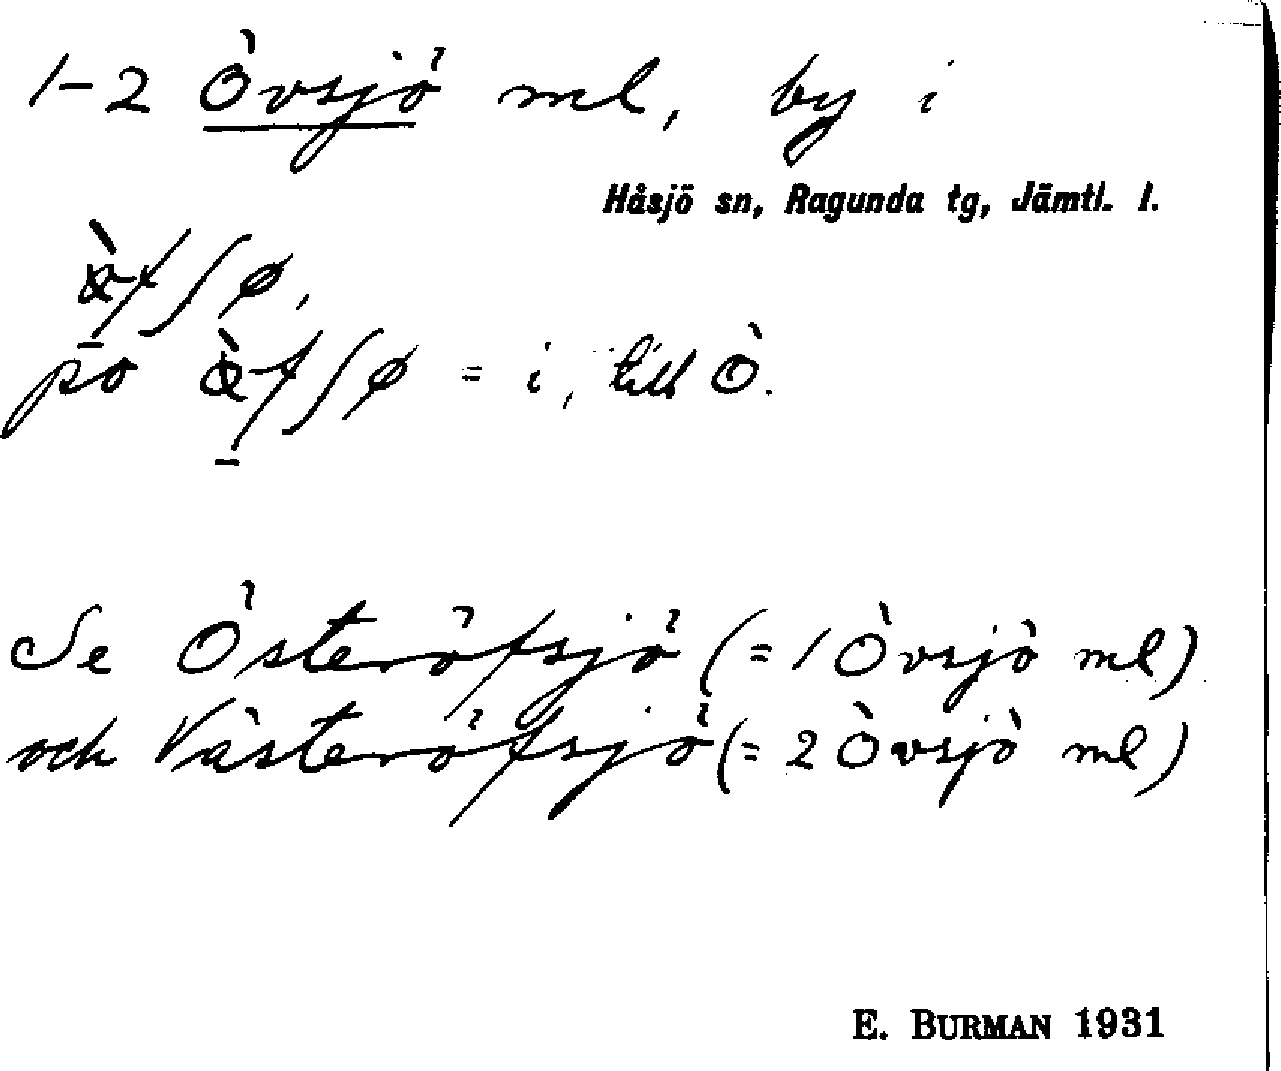 1-2 Övsjö ml, by i
Håsjö sn, Ragunda tg, Jämtl. l.
på = i, till Ö.
Se Österöfsjö (= 1 Övsjö ml)
och Västeröfsjö (= 2 Övsjö ml)
E. BURMAN 1931